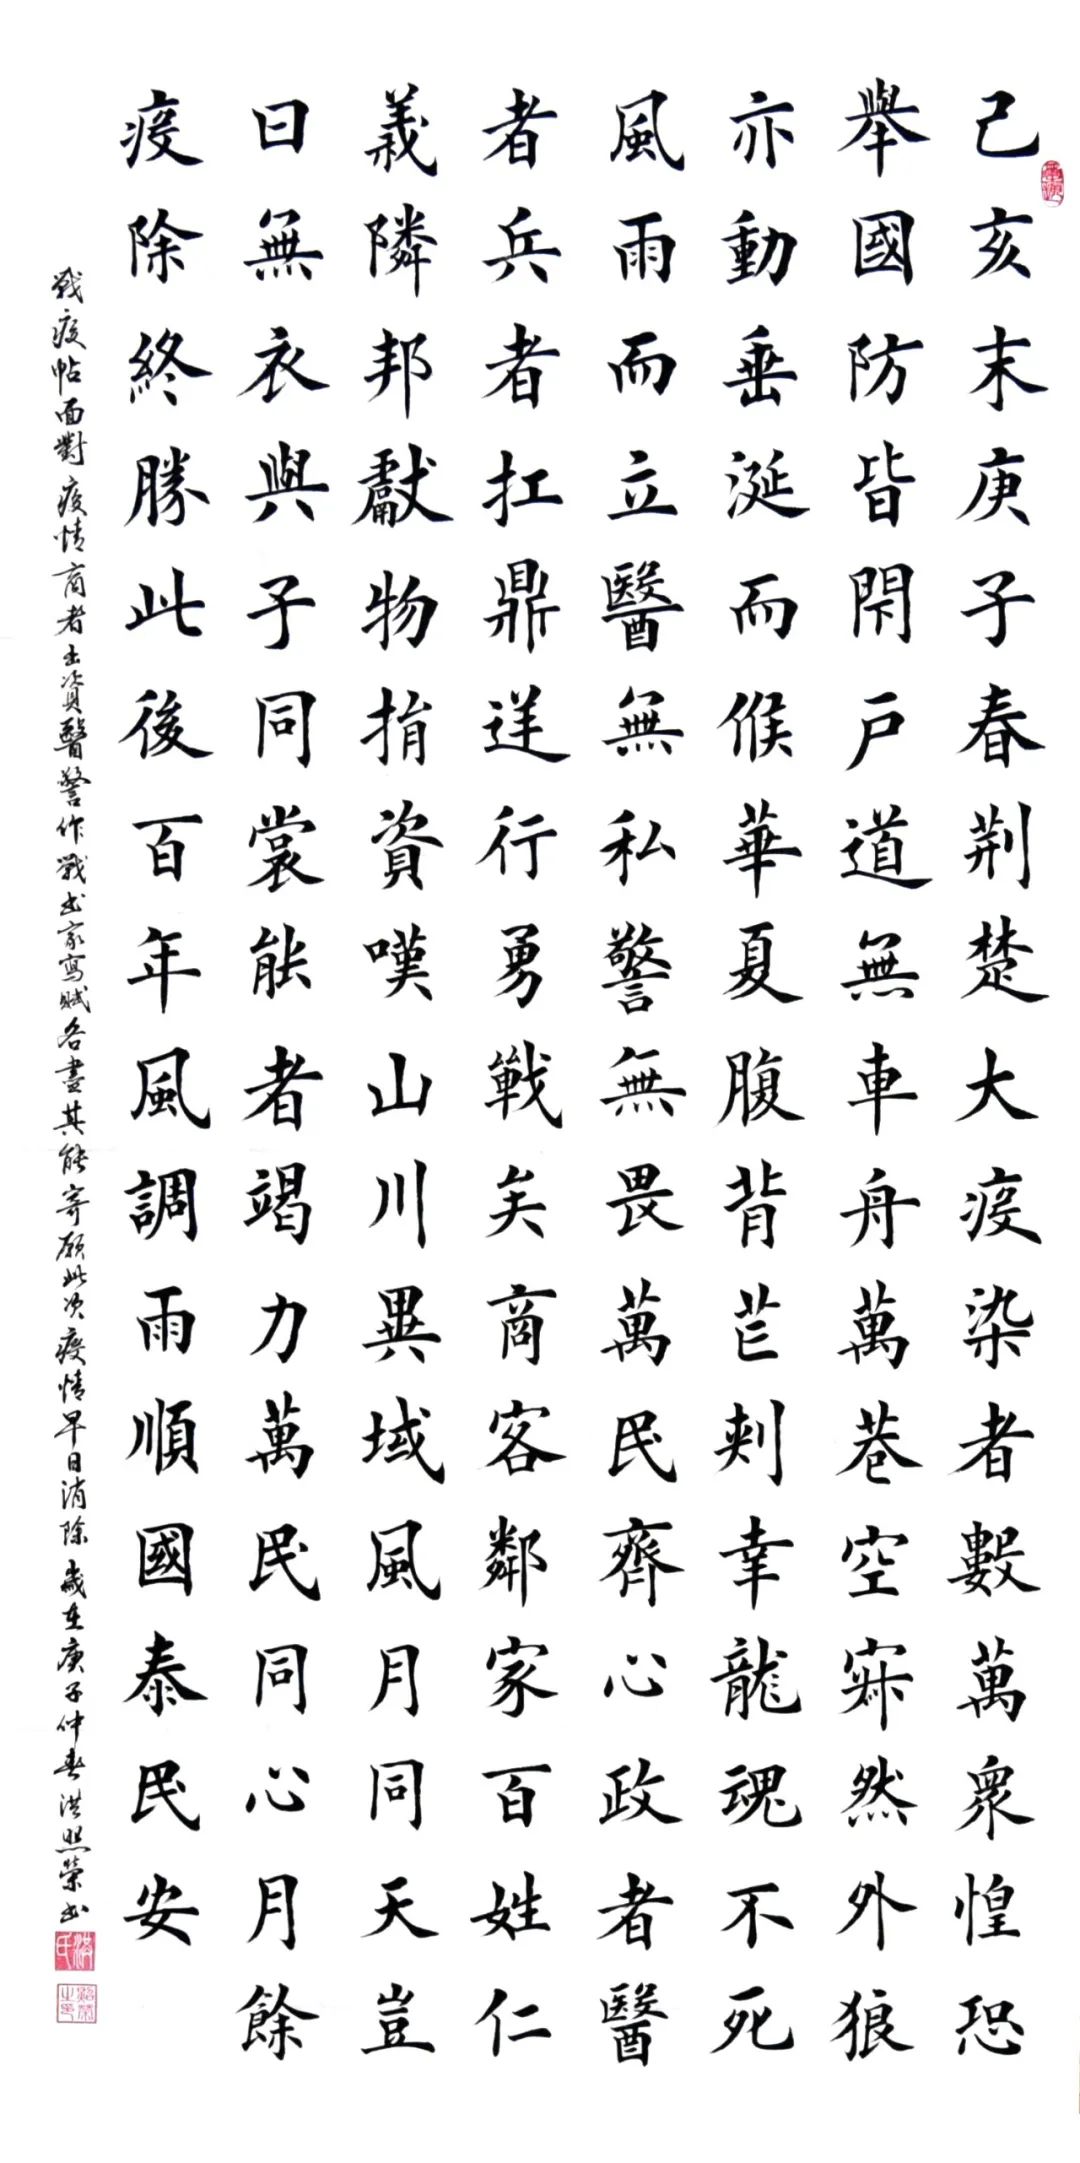 己亥末庚子春荆楚大疫染者數萬衆惶恐
舉國防皆閉戶道無車舟萬巷空寂然外狼
亦動垂涎而候華夏腹背芒刺幸龍魂不死
風雨而立醫無私警無畏萬民齊心政者醫
者兵者扛鼎逆行勇戰矣商客鄰家百姓仁
義隣邦獻物捐資嘆山川異域風月同天豈
曰無衣與子同裳能者竭力萬民同心月餘
疫除終勝此後百年風調雨順國泰民安
戰疫帖面對疫情商者出資醫警作戰書家寫賦各盡其能寄願此次疫情早日消除歲在庚子仲春洪照榮書
洪氏
照榮之印